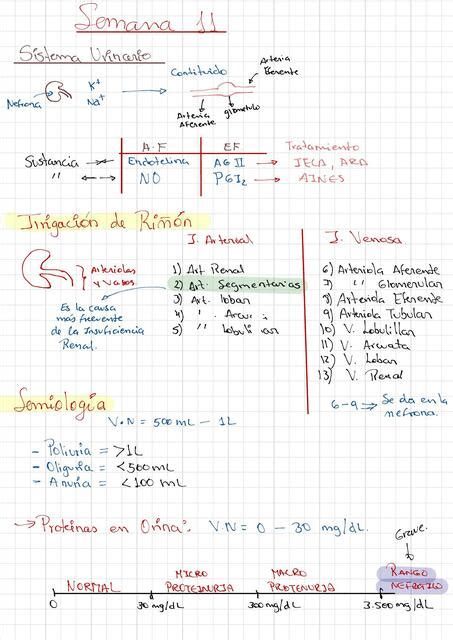 Semana 11
Sistema Urinario
Nefrona
K+
Na+
Constituido
Arteria Eferente
Arteria Aferente
glomérulo
A.F EF Tratamiento
Sustancia Endotelina AG II IECA, ARA
" NO PGI2 AINES
Irrigación de Riñón
I. Arterial
I. Venosa
Arteriolas y Vasos
Es la causa
más frecuente
de la Insuficiencia
Renal.
1) Art. Renal
2) Art. Segmentarias
3) Art. lobar
4) "
5) "
6) Arteriola Aferente
7) " Glomerular
8) Arteriola Eferente
9) Arteriola Tubular
10) V. Lobulillar
11) V. Arcuata
12) V. Lobar
13) V. Renal
6-9 Se da en la
nefrona.
Semiología
V.N = 500 mL - 1L
- Poliuria = >1L
- Oliguria = <500 mL
- Anuria = <100 mL
Proteínas en Orina: V.N = 0 - 30 mg/dL.
Grave.
NORMAL
MICRO PROTEINURIA
MACRO PROTENURIA
RANGO NEFROTICO
0 30 mg/dL 300 mg/dL 3.500 mg/dL